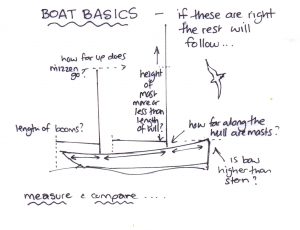 BOAT BASICS — if these are right
the rest will
follow...
how far up does
mizzen
go?
height
of
mast
more or
less than
length
of hull?
length of booms?
how far along the
hull are masts?
is bow
higher than
stern?
measure & compare ....